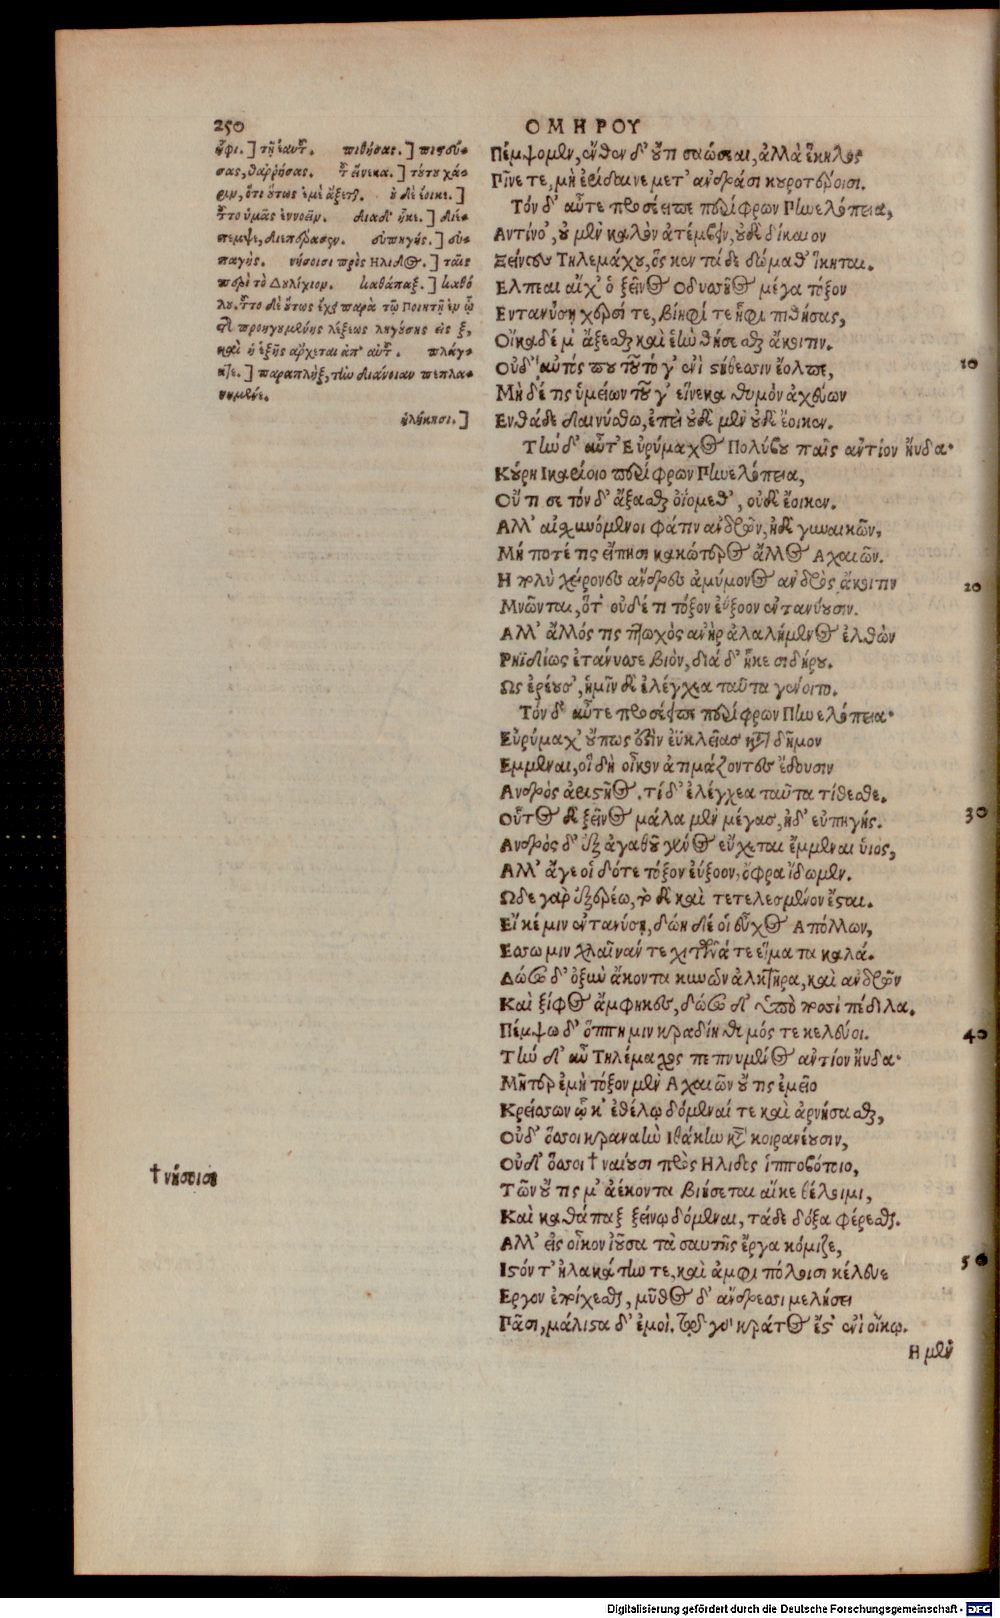 250
ΟΜΗΡΟΥ
ᾗφι.] τῇ ἑαυτ. πιθήσας.] πιστεύ-
σας, θαῤῥήσας. τ̃ εἵνεκα.] τούτου χά-
ριν, ὅτι οὕτως ἐμὲ ἄξεται. οὐδὲ ἔοικε.]
τ̃το ὑμᾶς ἐννοεῖν. διαδ' ἧκε.] διέ-
πεμψε, διεπέρασεν. εὐπηγής.] εὐ-
παγής. νήσοισι πρὸς Ηλιδος.] ταῖς
περὶ τὸ Δουλίχιον. καθάπαξ.] καθό
λου. τ̃το δὲ οὕτως ἔχει παρὰ τῷ Ποιητῇ ἐν ᾧ
προηγουμένης λέξεως ληγούσης εἰς ξ,
καὶ ἡ ἑξῆς ἄρχεται ἀπ' αὐτ. πλάγ-
παραπλὴξ, τὴν διάνοιαν πεπλα-
νημένε.
ἠλάκησι.]
Πέμψομεν, ἔνθεν δ' οὔτι σαώσεαι, ἀλλὰ ἕκηλος
Πῖνέ τε, μὴ ἐρίδαινε μετ' ἀνδράσι κουροτέροισι.
Τὸν δ' αὖτε προσέειπε περίφρων Πηνελόπεια,
Αντίνο', οὐ μὲν καλὸν ἀτέμβειν, οὐδὲ δίκαιον
Ξείνους Τηλεμάχου, ὅς κεν τάδε δώμαθ' ἵκηται.
Ελπεαι αἴχ' ὁ ξεῖνος Οδυσσῆος μέγα τόξον
Εντανύσῃ χερσί τε, βίηφί τε ᾗφι πιθήσας,
Οἴκαδέ μ' ἄξεσθαι καὶ ἑὴν θήσεσθαι ἄκοιτιν.
Οὐδ' αὐτός που τοῦτό γ' ἐνὶ στήθεσσιν ἔολπε, 10
Μηδέ τις ὑμείων τοῦ γ' εἵνεκα θυμὸν ἀχεύων
Ενθάδε δαινύσθω, ἐπεὶ οὐδὲ μὲν οὐδὲ ἔοικεν.
Τὴν δ' αὖτ' Εὐρύμαχος Πολύβου παῖς ἀντίον ἤυδα·
Κούρη Ικαρίοιο περίφρων Πηνελόπεια,
Οὔτι σε τόν δ' ἄξασθαι ὀϊόμεθ', οὐδὲ ἔοικεν.
Αλλ' αἰσχυνόμενοι φάτιν ἀνδρῶν, ἠδὲ γυναικῶν,
Μή ποτέ τις εἴπησι κακώτερος ἄλλος Αχαιῶν.
Η πολὺ χείρονες ἄνδρες ἀμύμονος ἀνδρὸς ἄκοιτιν 20
Μνῶνται, ὅτ' οὐδέ τι τόξον ἐύξοον ἐντανύουσιν.
Αλλ' ἄλλός τις πτωχὸς ἀνὴρ ἀλαλήμενος ἐλθὼν
Ρηϊδίως ἐτάνυσσε βιὸν, διὰ δ' ἧκε σιδήρου.
Ως ἐρέουσ', ἡμῖν δὲ ἐλέγχεα ταῦτα γένοιτο.
Τὸν δ' αὖτε προσέειπε περίφρων Πηνελόπεια·
Εὐρύμαχ' οὔπως ἔστιν ἐϋκλεῖας κατὰ δῆμον
Εμμεναι, οἳ δὴ οἶκον ἀτιμάζοντες ἔδουσιν
Ανδρὸς ἀριστῆος. τί δ' ἐλέγχεα ταῦτα τίθεσθε.
Οὗτος δὲ ξεῖνος μάλα μὲν μέγας, ἠδ' εὐπηγής. 30
Ανδρὸς δ' ἐξ ἀγαθοῦ γένος εὔχεται ἔμμεναι ὑιός,
Αλλ' ἄγε οἱ δότε τόξον ἐύξοον, ὄφρα ἴδωμεν.
Ωδε γὰρ ἐξερέω, τὸ δὲ καὶ τετελεσμένον ἔσται.
Εἴ κέ μιν ἐντανύσῃ, δώη δέ οἱ εὖχος Απόλλων,
Εσσω μιν χλαῖνάν τε χιτῶνά τε εἵματα καλά.
Δώσω δ' ὀξὺν ἄκοντα κυνῶν ἀλκτῆρα, καὶ ἀνδρῶν
Καὶ ξίφος ἄμφηκες, δώσω δ' ὑπὸ ποσὶ πέδιλα.
Πέμψω δ' ὅππη μιν κραδίη θυμός τε κελεύοι. 40
Τὴν δ' αὖ Τηλέμαχος πεπνυμένος ἀντίον ἤυδα·
Μῆτερ ἐμὴ τόξον μὲν Αχαιῶν οὔτις ἐμεῖο
Κρείσσων ᾧ κ' ἐθέλω δόμεναί τε καὶ ἀρνήσασθαι,
Οὐδ' ὅσσοι κραναὴν Ιθάκην κάτα κοιρανέουσιν,
Οὐδ' ὅσσοι † ναίουσι πρὸς Ηλιδος ἱπποβότοιο,
† νήσοισι
Τῶν οὔτις μ' ἀέκοντα βιήσεται αἴκε θέλοιμι,
Καὶ καθάπαξ ξείνῳ δόμεναι, τάδε δόξα φέρεσθαι.
Αλλ' εἰς οἶκον ἰοῦσα τὰ σαυτῆς ἔργα κόμιζε,
Ιστόν τ' ἠλακάτην τε, καὶ ἀμφιπόλοισι κέλευε 50
Εργον ἐποίχεσθαι, μῦθος δ' ἄνδρεσσι μελήσει
Πᾶσι, μάλιστα δ' ἐμοί. τοῦ γὰρ κράτος ἔστ' ἐνὶ οἴκῳ.
Η μὲν
Digitalisierung gefördert durch die Deutsche Forschungsgemeinschaft - DFG